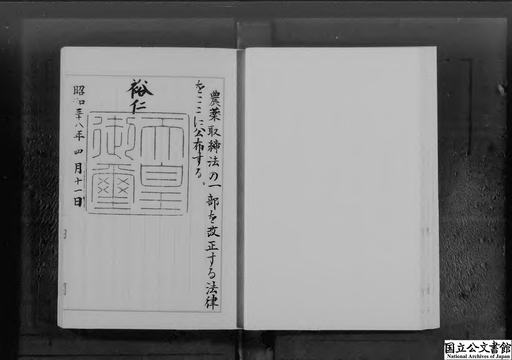 農薬取締法の一部を改正する法律
をここに公布する。
裕仁
天皇
御璽
昭和三十八年四月十一日
国立公文書館
National Archives of Japan